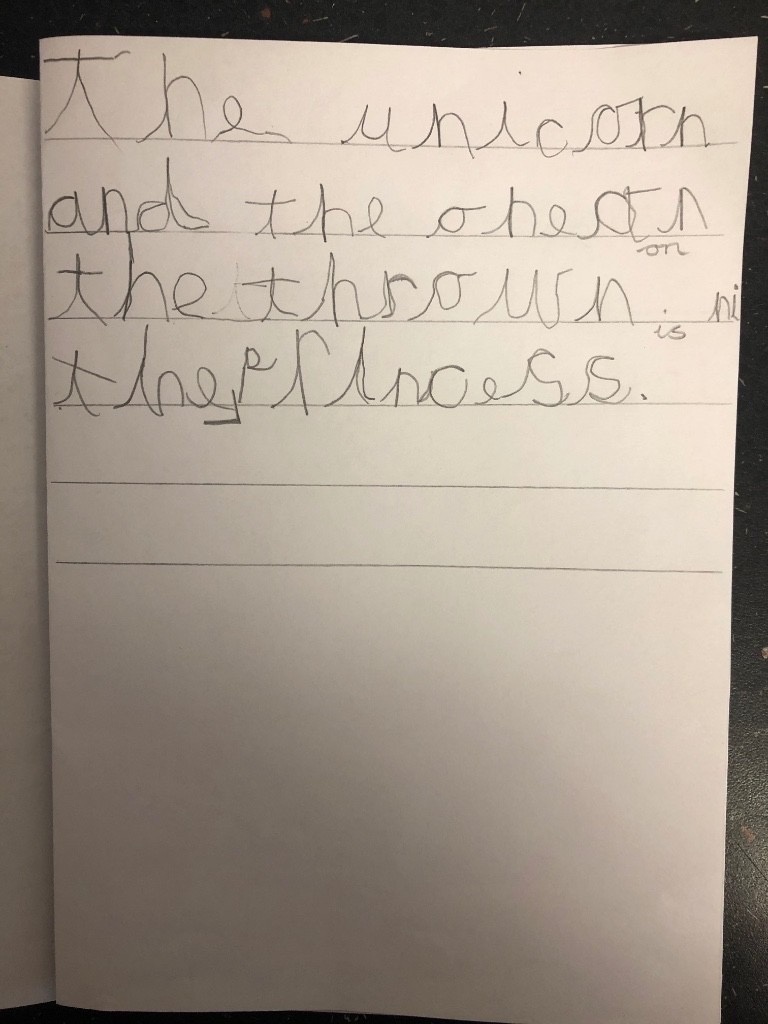 The unicorn
and the one
on
the thrown. ni
is
the princess.